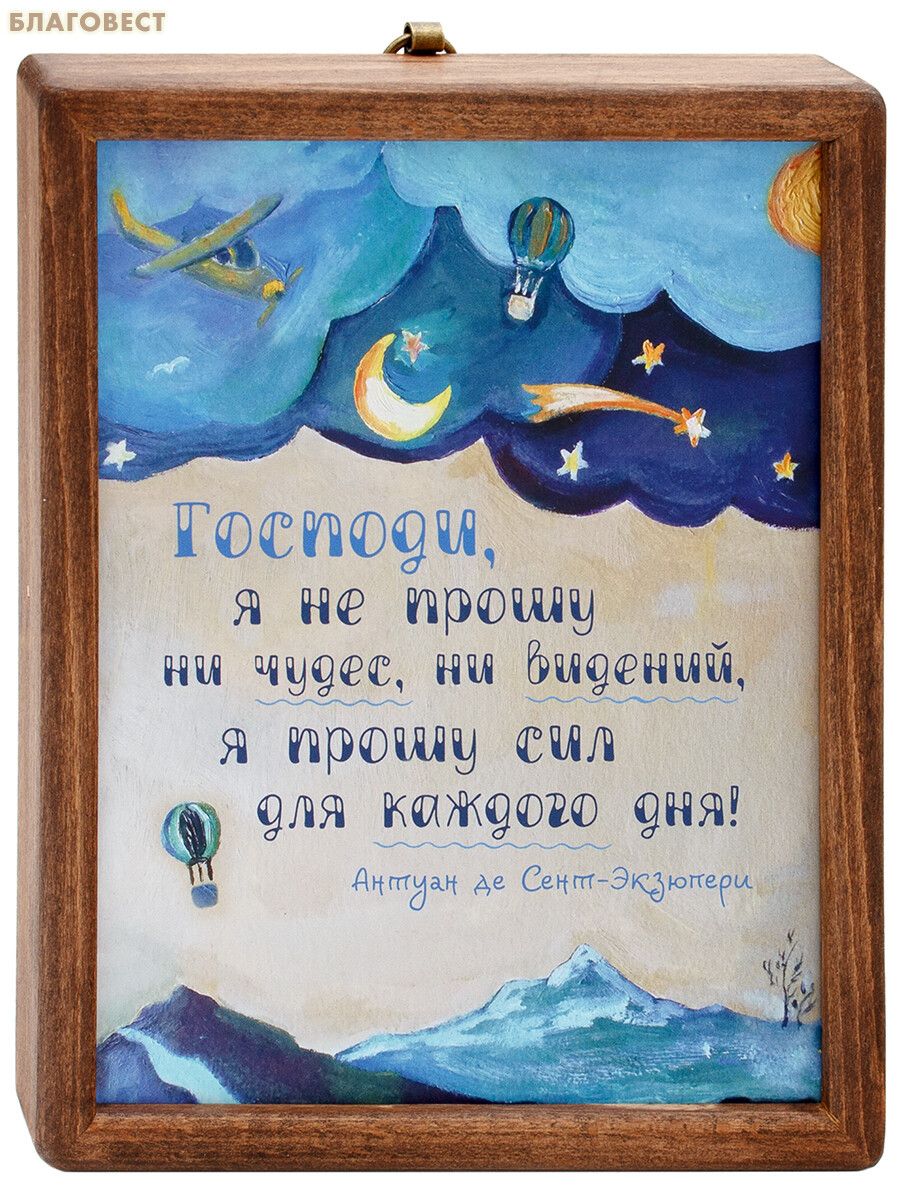 БЛАГОВЕСТ
Господи,
я не прошу
ни чудес, ни видений,
я прошу сил
для каждого дня!
Антуан де Сент-Экзюпери